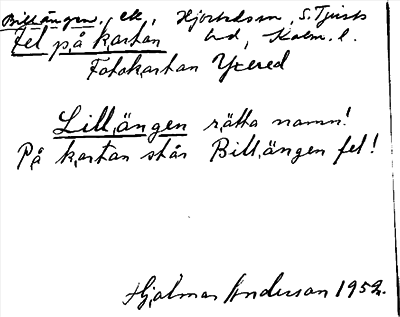 Billängen, ek, Hjorteds sn, S. Tjusts
fel på kartan hd, Kalm. l.
Fotokartan Yxered
Lillängen rätta namn!
På kartan står Billängen fel!
Hjalmar Anderson 1952.